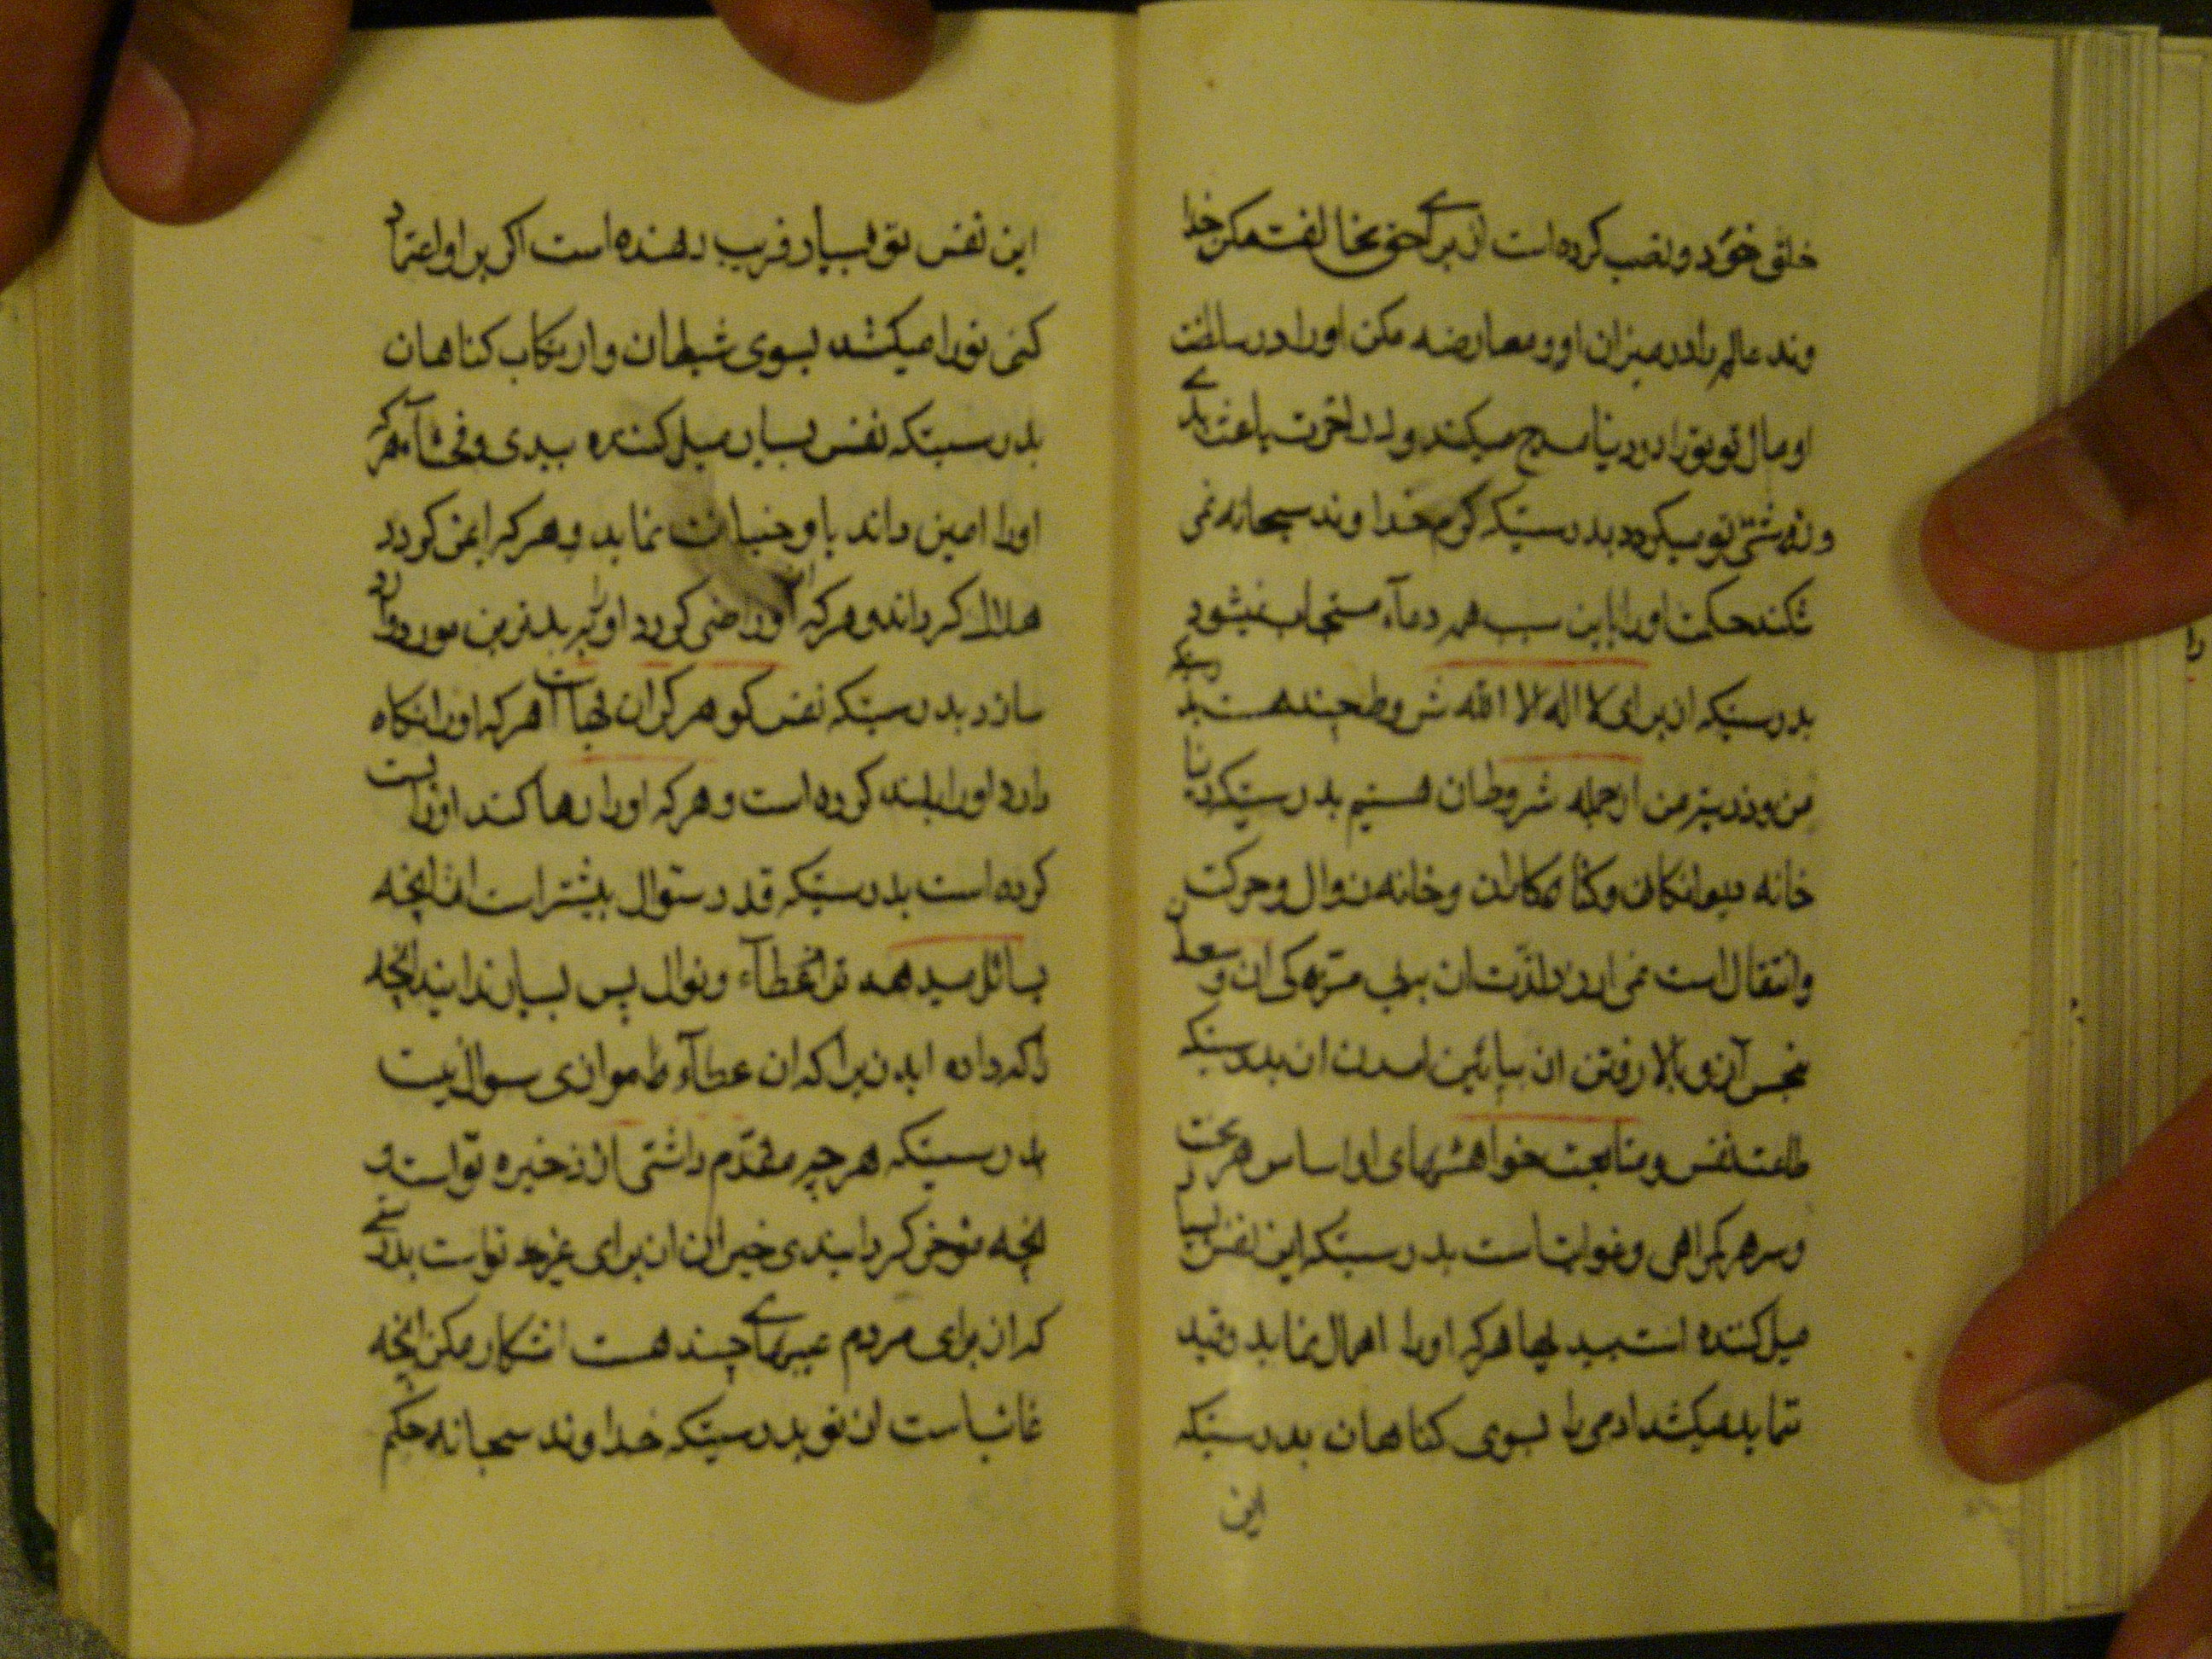 خلق خود و نصب کرده است از برای حق مخالفت مکن خدا
وند عالم را در میزان او و معارضه مکن او را در سلطنت
او مال تو تو را در دنیا مدح میکند و در اخرت باعث بدی
و زشتی تو میکردد بدرستیکه کرم خداوند سبحانه نمی
شکند حکمت او را باین سبب همه دعاء مستجاب نمیشود
بدرستیکه از برای لا اله الا الله شروط چند هست بدرستیکه
من و ذریه من از جمله شروط ان هستیم بدرستیکه دنیا
خانه و خانه زوال و حرکت
وانتقال است لذت ان و سعد ان
نحس آن و بالا رفتن ان بپائین امدن ان بدرستیکه
طاعت نفس و متابعت خواهشهای او اساس هر محنت
و سر هر کمراهی و غوایت است بدرستیکه این نفس بسیار
میل کننده است ببدیها هر که او را اهمال نماید و قید
ننماید میکشد ادمی را بسوی کناهان بدرستیکه
این
این نفس تو بسیار فریب دهنده است اکر بر او اعتماد
کنی تو را میکشد بسوی شیطان و ارتکاب کناهان
بدرستیکه نفس بسیار میل کننده ببدی و فحشآء هر که
او را امین داند باو خیانت نماید و هر که ایمن کردد
هلاک کرداند و هر که از او راضی کردد او را به بدترین موردها وارد
سازد بدرستیکه نفس کوهر کران بها است هر که او را نکاه
دارد او را بلند کرده است و هر که او را رها کند او را پست
کرده است بدرستیکه قدر سئوال بیشتر است از انچه
بسائل میدهند از عطآء و نوال پس بسیار ندانید انچه
را که داده اید زیرا که ان عطآء موازی سوال نیست
بدرستیکه هر چه مقدم داشتی ان ذخیره تو است و
انچه مؤخر کردانیدی خیر ان از برای غیر تو است بدرستی
که از برای مردم عیبهای چند هست اشکار مکن انچه
غائب است از تو بدرستیکه خداوند سبحانه حکم